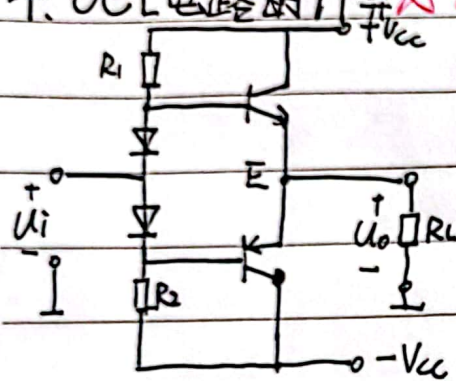 1、OCL电路的
+Vcc
R₁
E
+
Ui
-
+
Uo
-
RL
R₂
-Vcc